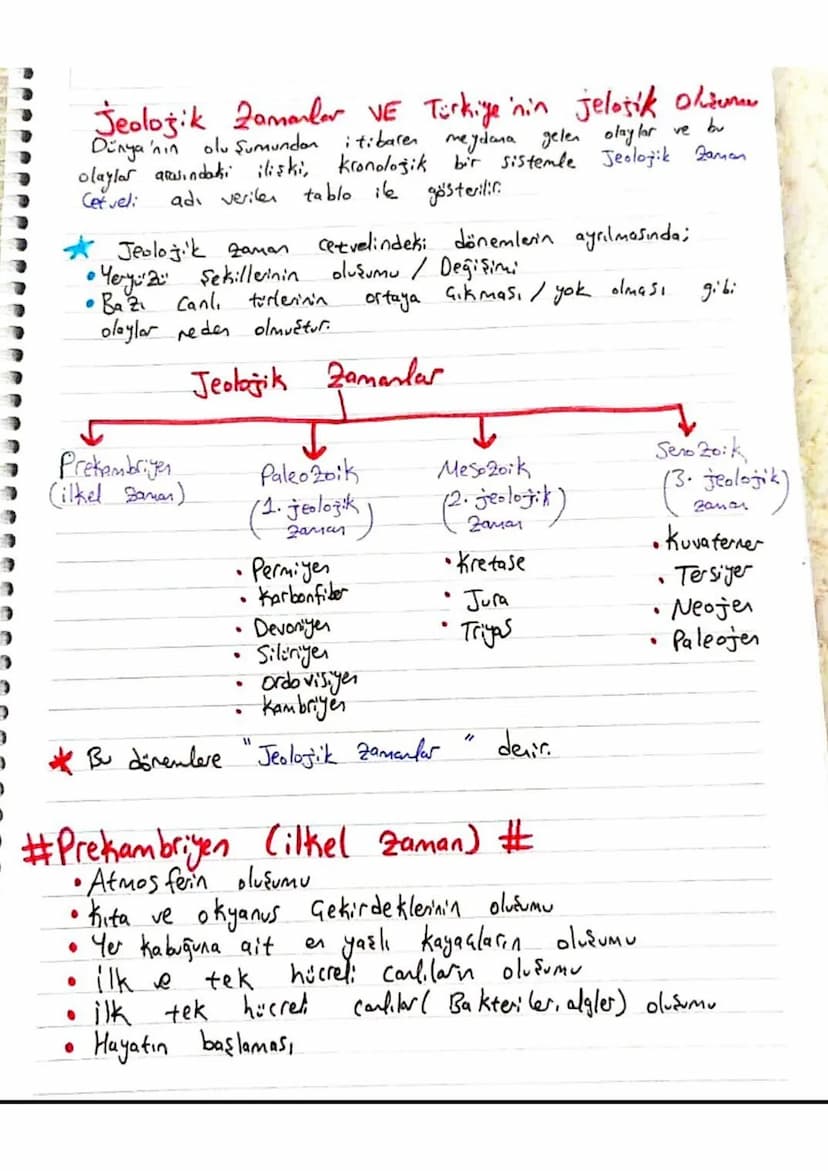 Jeolojik Zamanlar VE Türkiye'nin jelojik Oluşumu
Dünya'nın oluşumundan itibaren meydana gelen olaylar ve bu
olaylar arasındaki ilişki, kronolojik bir sistemle Jeolojik Zaman
Cetveli adı verilen tablo ile gösterilir.
★ Jeolojik zaman cetvelindeki dönemlerin ayrılmasında;
• Yeryüzü Şekillerinin oluşumu / Değişimi
• Bazı Canlı türlerinin ortaya Çıkması / yok olması gibi
olaylar neden olmuştur.
Jeolojik Zamanlar
Prekambriyen
(ilkel zaman)
Paleozoik
(1. jeolojik
zaman)
• Permiyen
• Karbonfiber
• Devoniyen
• Silüriyen
• Ordovisiyen
• Kambriyen
Mesozoik
(2. jeolojik
zaman)
• Kretase
• Jura
• Triyas
Senozoik
(3. jeolojik)
zaman
• Kuvaterner
• Tersiyer
• Neojen
• Paleojen
★ Bu dönemlere "Jeolojik Zamanlar" denir.
#Prekambriyen (ilkel zaman) #
• Atmosferin oluşumu
• Kıta ve okyanus Çekirdeklerinin oluşumu
• Yer kabuğuna ait en yaşlı kayaçların oluşumu
• İlk e tek hücreli canlıların oluşumu
• İlk tek hücreli canlılar( Bakteriler, algler) oluşumu
• Hayatın başlaması